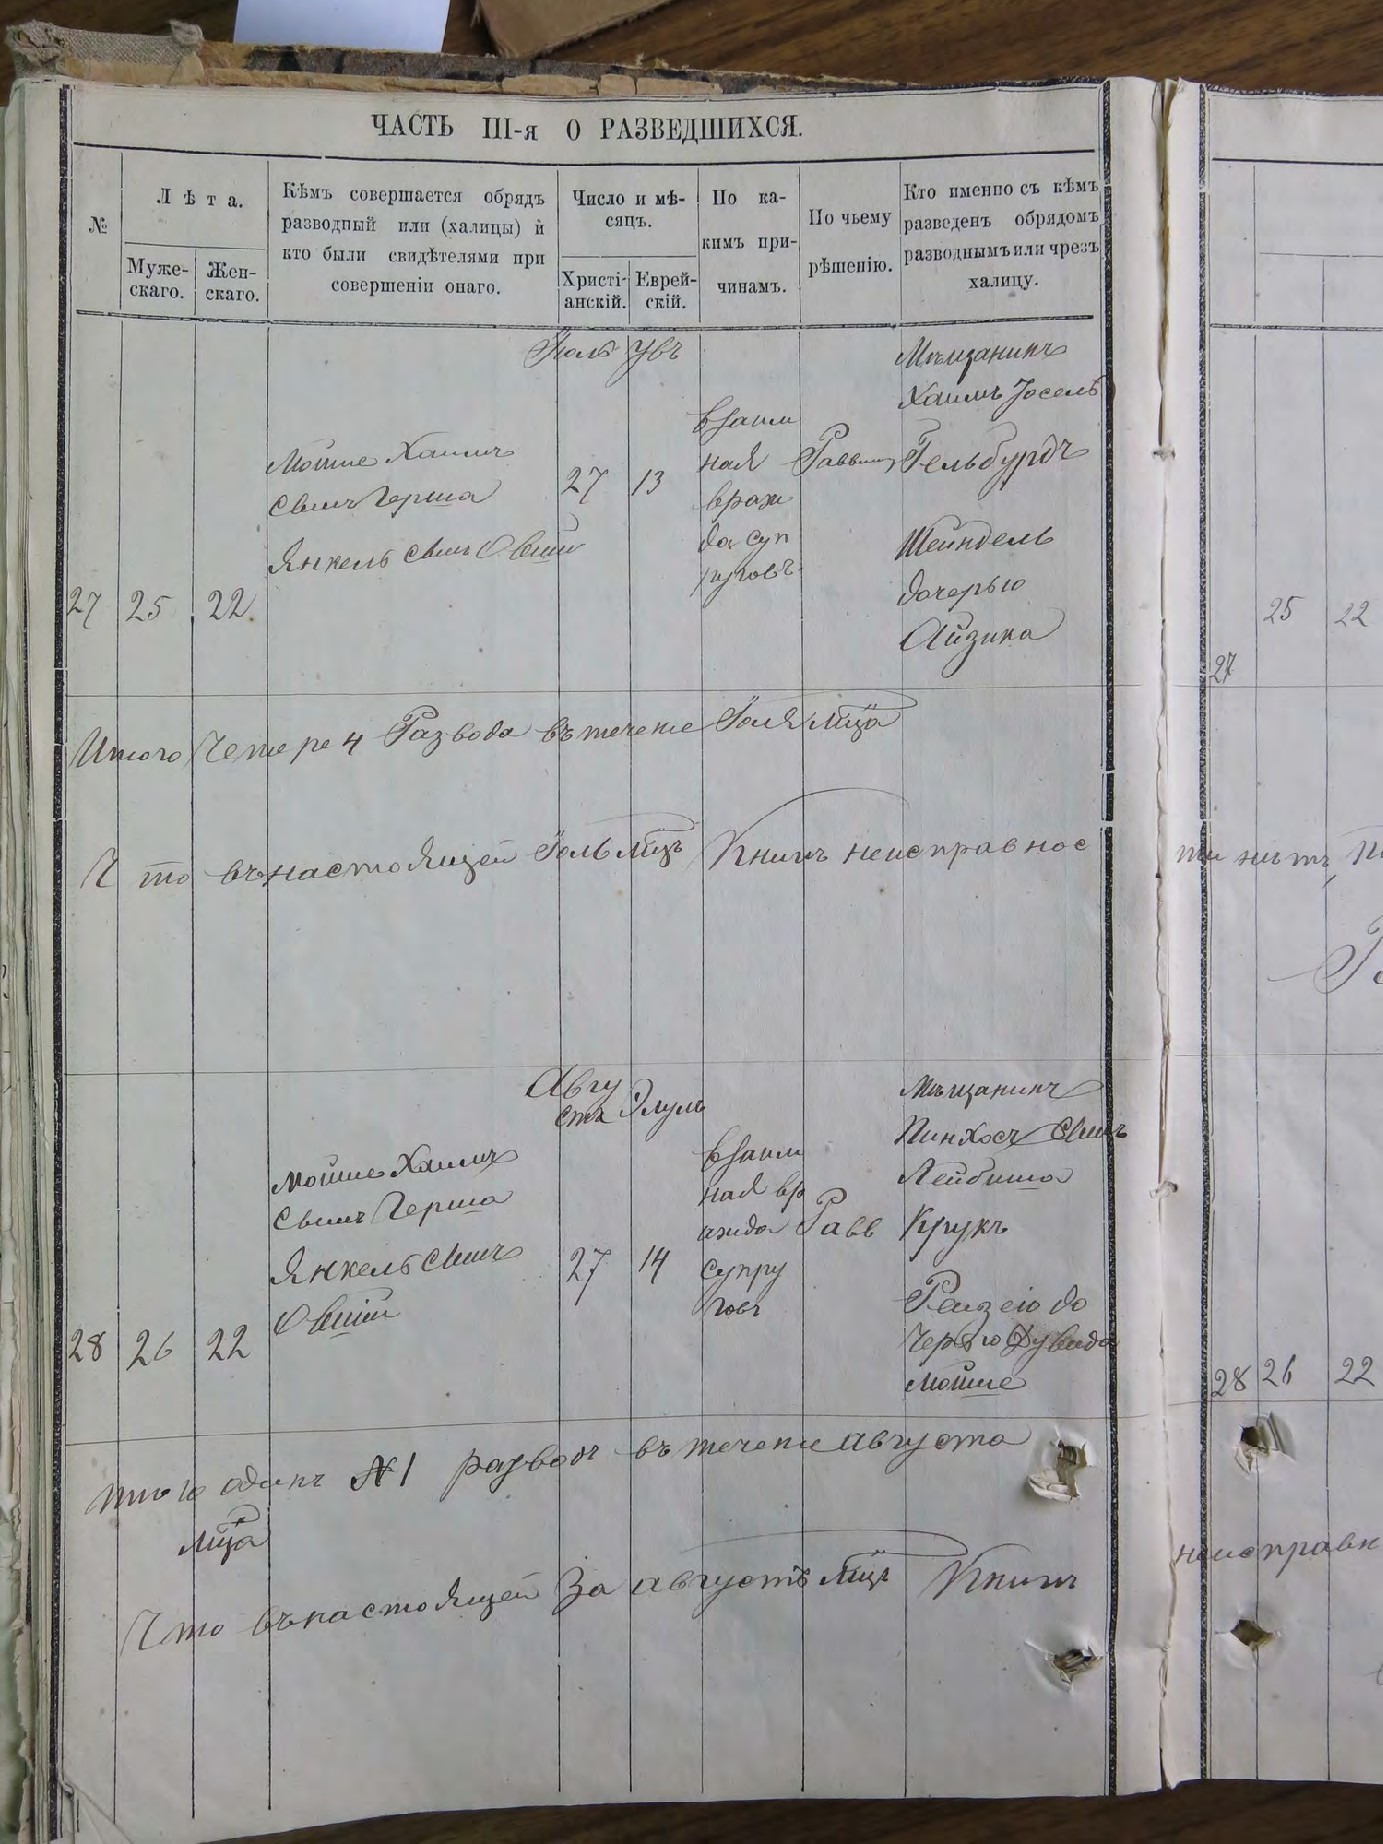 ЧАСТЬ III-я О РАЗВЕДШИХСЯ.
№
Лѣта.
Муже-
скаго.
Жен-
скаго.
Кѣмъ совершается обрядъ
разводный или (халицы) й
кто были свидѣтелями при
совершеніи онаго.
Число и мѣ-
сяцъ.
Христі-
анскій.
Еврей-
скій.
По ка-
кимъ при-
чинамъ.
По чьему
рѣшенію.
Кто именно съ кѣмъ
разведенъ обрядомъ
разводнымъ или чрезъ
халицу.
27
25
22
Мойше Хаимъ
Свинъ Герша
Янкель Свинъ Овшіи
Іюль
27
13
взаим
ная
враж
да суп
руговъ
Раввин
Мѣщанинъ
Хаимъ Іосель
Гельбурдъ
Шейндель
дочерью
Айзика
Итого Четере 4 Развода въ течение Іюля Мца
Что въ настоящей Іюль Мцъ Книгъ неисправнос
28
26
22
Мойше Хаимъ
Свинъ Герша
Янкель Свинъ
Овшіи
Авгу
стъ
Элуль
27
14
взаим
ная вр
ажда
супру
говъ
Равв
Мѣщанинъ
Пинхосъ Свинъ
Лейбиша
Крукъ
Рейзею до
черью Дувида
Мойше
Итого одинъ № 1 разводъ въ течение августа
Мца
Что въ настоящей За августъ Мцъ Книгъ
27
25
22
ти нѣтъ
28
26
22
неисправн